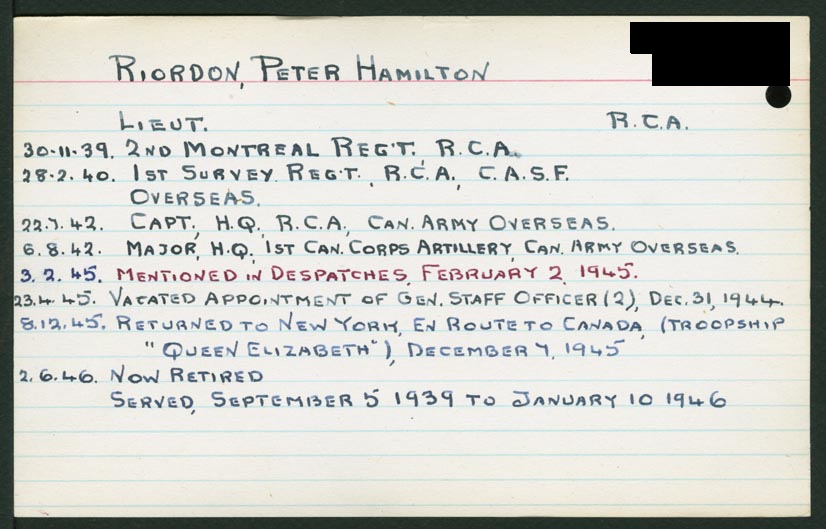 RIORDON, PETER HAMILTON
LIEUT. R.C.A.
30.11.39. 2ND MONTREAL REG'T. R.C.A.
28.2.40. 1ST SURVEY REG'T., R.C.A., C.A.S.F.
OVERSEAS.
22.7.42. CAPT., H.Q. R.C.A., CAN. ARMY OVERSEAS.
6.8.42. MAJOR, H.Q. 1ST CAN. CORPS ARTILLERY, CAN. ARMY OVERSEAS.
3.2.45. MENTIONED IN DESPATCHES, FEBRUARY 2, 1945.
23.4.45. VACATED APPOINTMENT OF GEN. STAFF OFFICER (2), DEC. 31, 1944.
8.12.45. RETURNED TO NEW YORK, EN ROUTE TO CANADA, (TROOPSHIP
"QUEEN ELIZABETH"), DECEMBER 7, 1945
2.6.46. NOW RETIRED
SERVED, SEPTEMBER 5 1939 TO JANUARY 10 1946